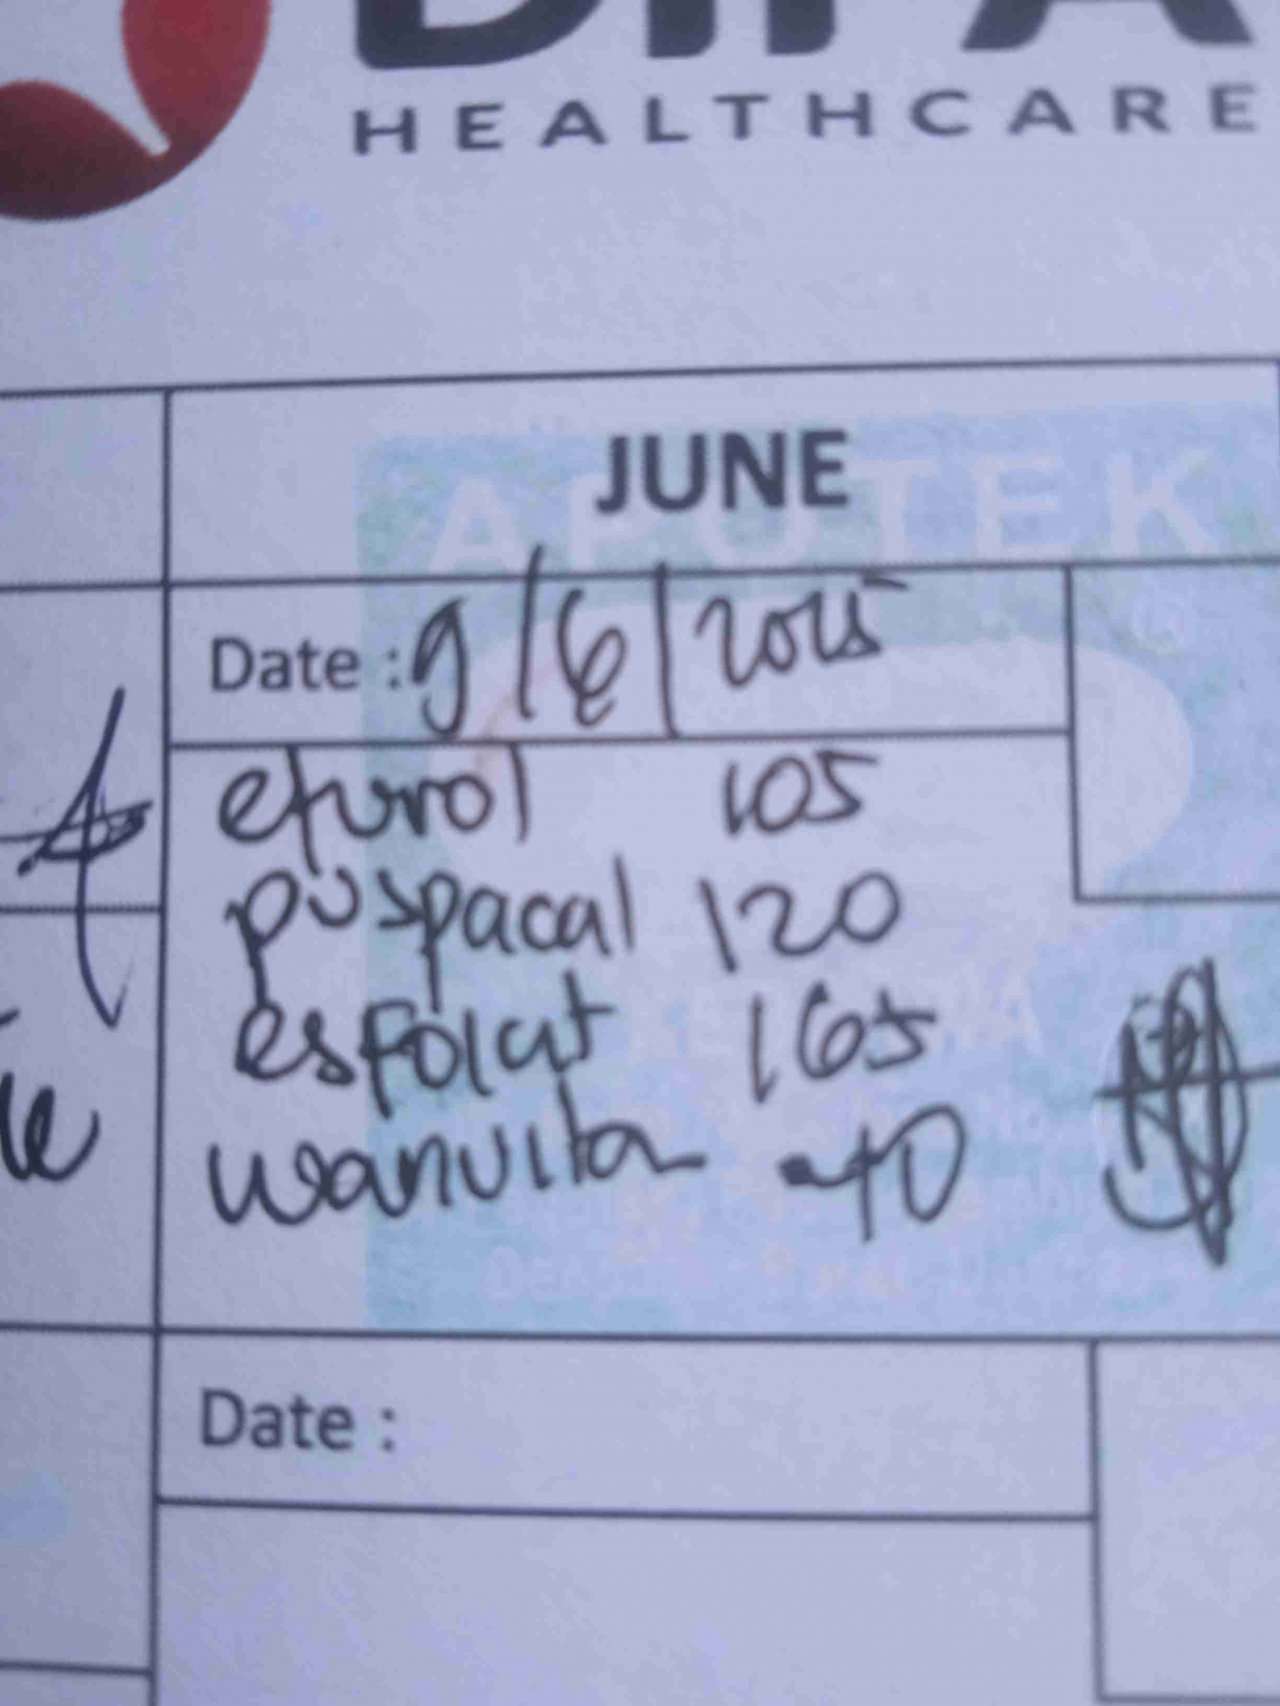 HEALTHCARE
JUNE
APOTEK
Date : 9/6/2025
efurol 105
puspacal 120
esfolat 165
wanvita 40
Date :